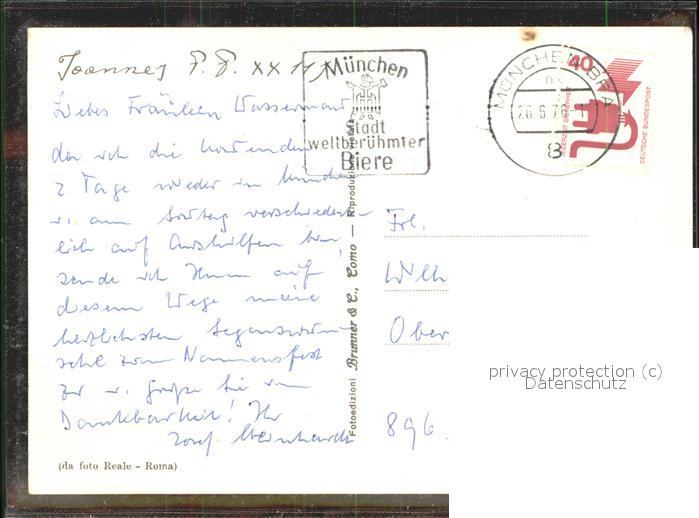 Joannes P.P. XXIII
Liebes Fräulein Wassermann,
da ich die kommenden
2 Tage wieder in München
u. am Sonntag verschieden-
lich auf Aushilfen bin,
sende ich Ihnen auf
diesem Wege meine
herzlichsten Segenswün-
sche zum Namensfest
zu u. grüße Sie in
Dankbarkeit! Ihr
Josef
(da foto Reale - Roma)
Fotoedizioni Brunner & C., Como — Riproduzione vietata
München
Stadt
weltberühmter
Biere
MÜNCHEN
8
40
JEDERZEIT SICHERHEIT
DEUTSCHE BUNDESPOST
Frl.
Wilh
Ober
896
privacy protection (c)
Datenschutz